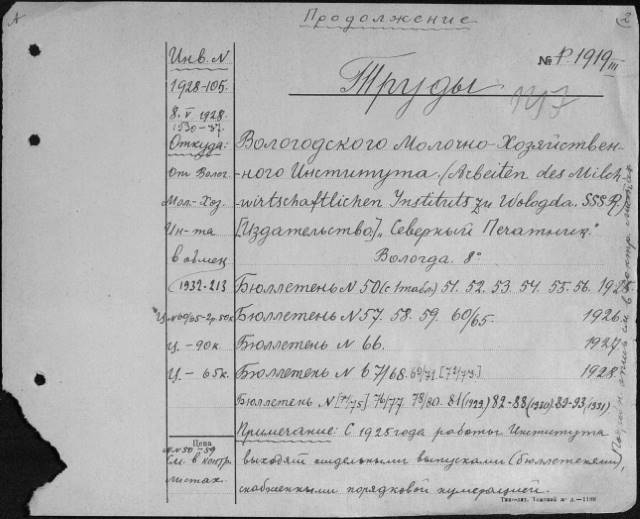 Продолжение
Инв. N
№ P. 1919 III
1928-105.
Труды
8. V 1928.
1930-37.
Откуда:
Вологодского Молочно-Хозяйствен-
от Волог.
-ного Института. (Arbeiten des Milch-
Мол-Хоз.
-wirtschaftlichen Instituts zu Wologda. SSSR).
Ин-та
[Издательство] „Северный Печатник."
в обмен
Вологда. 8°
1932-213
Бюллетень N 50 (с 1 табл.) 51. 52. 53. 54. 55. 56. 1925.
Ц. № 60/65-2р. 50к.
Бюллетень N 57. 58. 59. 60/65. 1926.
ц. - 90к.
Бюллетень N 66. 1927
Ц - 65к.
Бюллетень N 67/68. 69/71 [72/73.] 1928.
Бюллетень N [74/75] 76/77 78/80. 81 (1929) 82-88 (1930) 89-93 (1931)
Примечание: С 1925 года работы Института
Цена
N N 50-59
См. в контр.
выходят отдельными выпусками (бюллетенями),
листах.
снабженными порядковой нумерацией.
Типо-лит. Томской ж. д.—1199